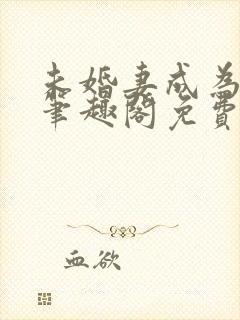 未婚妻成为
笔趣阁免费
血欲